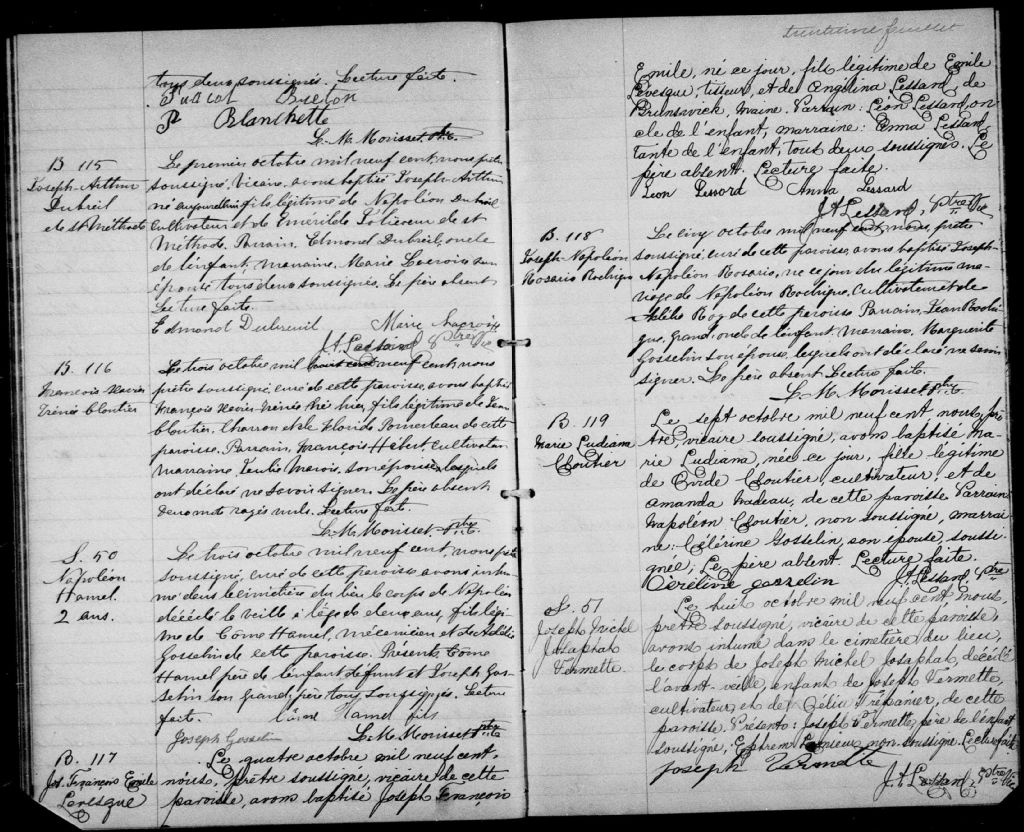 tous deux soussignés. Lecture faite.
Pascal Breton
P. Blanchette
L. M. Morisset, ptre
B. 115
Joseph-Arthur
Dubreil
de St Méthode
Le premier octobre mil neuf cent, nous prêtre
soussigné, vicaire, avons baptisé Joseph-Arthur
né aujourd'hui fils légitime de Napoléon Dubreil
cultivateur et de Emérilde de St
Méthode. Parrain, Edmond Dubreil, oncle
de l'enfant, marraine, Marie Lacroix son
épouse tous deux soussignés. Le père absent
Lecture faite.
Edmond Dubreuil Marie Lacroix
J. A. Lessard, ptre Vic
B. 116
François Xavier
Irénée Cloutier
Le trois octobre mil neuf cent, nous
prêtre soussigné, curé de cette paroisse, avons baptisé
François Xavier Irénée né hier, fils légitime de Jean
Cloutier, charron et de Florida Pomerleau de cette
paroisse. Parrain, François Hébert, cultivateur
marraine Marois, son épouse, lesquels
ont déclaré ne savoir signer. Le père absent
Deux mots rayés nuls. Lecture fait.
L. M. Morisset, ptre
S. 50
Napoléon
Hamel
2 ans.
Le trois octobre mil neuf cent, nous prêtre
soussigné, curé de cette paroisse avons inhu-
mé dans le cimetière du lieu le corps de Napoléon
décédé la veille à l'âge de deux ans, fils légi-
time de Côme Hamel, mécanicien et de Adélia
Gosselin de cette paroisse. Présents Côme
Hamel père de l'enfant défunt et Joseph Gos-
selin son grand-père tous soussignés. Lecture
faite. Côme Hamel fils
Joseph Gosselin L. M. Morisset ptre
B. 117
Jos. François Emile
Levesque
Le quatre octobre mil neuf cent,
nous, prêtre soussigné, vicaire de cette
paroisse, avons baptisé Joseph François
trentième feuillet
Emile, né ce jour, fils légitime de Emile
Levesque, tisseur, et de Angélina Lessard, de
Brunswick, Maine. Parrain: Léon Lessard, on-
cle de l'enfant, marraine: Anna Lessard,
tante de l'enfant, tous deux soussignés. Le
père absent. Lecture faite.
Léon Lessard Anna Lessard
J. A. Lessard, ptre Vic
B. 118
Joseph Napoléon
Rosario Rodrigue
Le cinq octobre mil neuf cent, nous, prêtre
soussigné, curé de cette paroisse, avons baptisé Joseph
Napoléon Rosario, né ce jour du légitime ma-
riage de Napoléon Rodrigue, cultivateur et de
Roy de cette paroisse. Parrain, Jean Rodri-
gue, grand oncle de l'enfant. Marraine, Marguerite
Gosselin son épouse, lesquels ont déclaré ne savoir
signer. Le père absent Lecture faite.
L. M. Morisset ptre
B. 119
Marie Ludiana
Cloutier
Le sept octobre mil neuf cent nous, prê-
tre, vicaire soussigné, avons baptisé Ma-
rie Ludiana, née ce jour, fille légitime
de Ovide Cloutier, cultivateur, et de
Amanda Nadeau, de cette paroisse. Parrain
Napoléon Cloutier, non soussigné, marrai-
ne: Célérine Gosselin, son épouse, soussi-
gnée; Le père absent. Lecture faite.
Cérélivre gosselin J. A. Lessard, ptre
S. 51
Joseph Michel
Josaphat
Vermette
Le huit octobre mil neuf cent, nous,
prêtre soussigné, vicaire de cette paroisse,
avons inhumé dans le cimetière du lieu,
le corps de Joseph Michel Josaphat, décédé
l'avant-veille, enfant de Joseph Vermette,
cultivateur, et de Célia Trépanier, de cette
paroisse. Présents: Joseph Vermette, père de l'enfant
soussigné, Ephrem Lemieux non soussigné. Lecture faite
Joseph Vermette
J. A. Lessard, ptre Vic